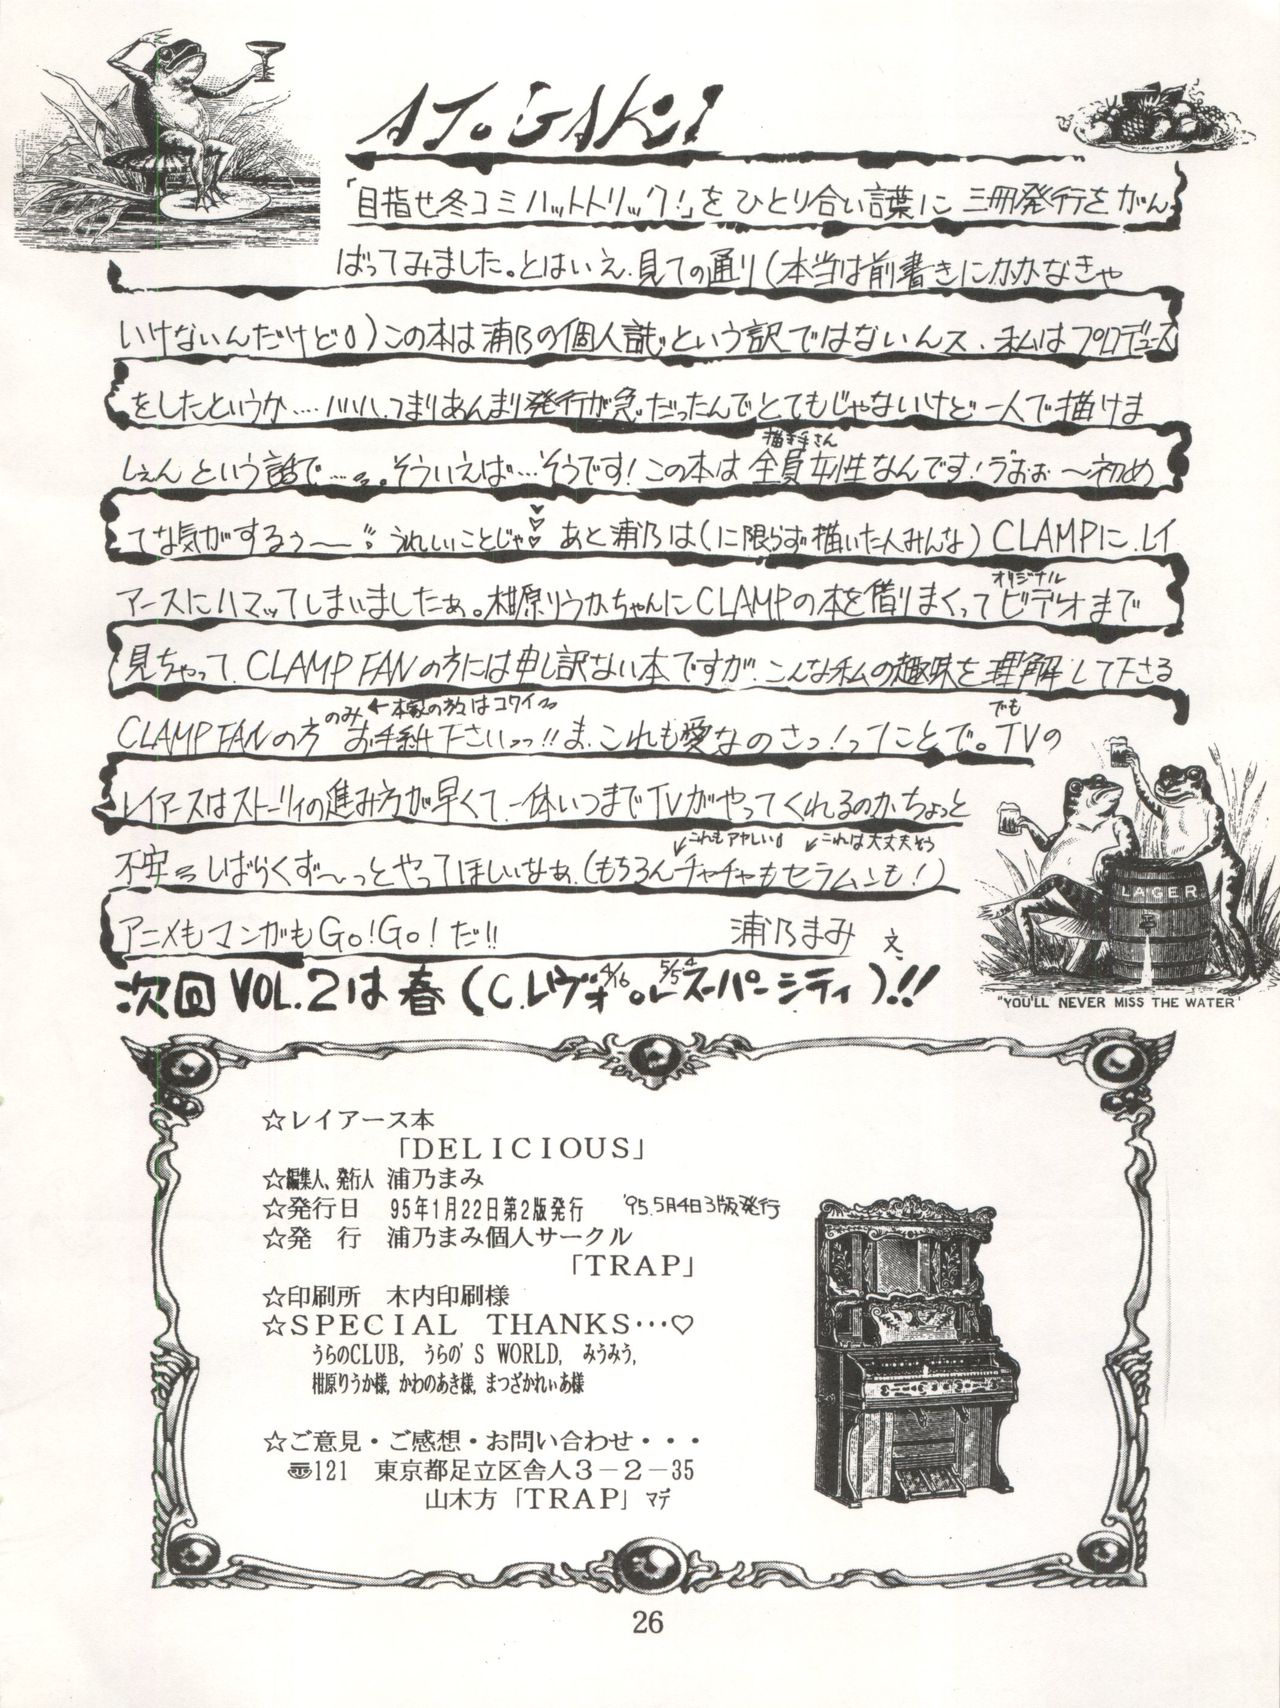 ATOGAKI
「目指せ冬コミハットトリック!」をひとり合い言葉に三冊発行をがん
ばってみました。とはいえ、見ての通り(本当は前書きにかかなきゃ
いけないんだけど)この本は浦乃の個人誌という訳ではないんス、私はプロデュース
をしたというか…ハハハ、つまりあんまり発行が急だったんでとてもじゃないけど一人で描けま
しぇんという話で…。そういえば…そうです!この本は全員女性なんです!うおぉ〜初め
描き手さん
てな気がするぅ〜 うれしいことじゃ♡ あと浦乃は(に限らず描いた人みんな)CLAMPに、レイ
アースにハマッてしまいましたぁ。柑原りうかちゃんにCLAMPの本を借りまくってビデオまで
オリジナル
見ちゃって、CLAMP FANの方には申し訳ない本ですが、こんな私の趣味を理解して下さる
CLAMP FANの方お手紙下さいっっ!!ま、これも愛なのさっ!ってことで。TVの
のみ←本家の方はコワイ
でも
レイアースはストーリィの進み方が早くて、一体いつまでTVがやってくれるのか、ちょっと
不安 しばらくず〜っとやってほしいなぁ、(もちろんチャチャもセラムンも!)
これもアヤしい
これは大丈夫そう
アニメもマンガもGo!Go!だ!! 浦乃まみ 文
次回VOL.2は春(C.レヴォ or スーパーシティ)!!
4/16
5/5 4
LAGER
"YOU'LL NEVER MISS THE WATER"
☆レイアース本
「DELICIOUS」
☆編集人、発行人 浦乃まみ
☆発行日 95年1月22日第2版発行 '95.5月4日3版発行
☆発 行 浦乃まみ個人サークル
「TRAP」
☆印刷所 木内印刷様
☆SPECIAL THANKS…♡
うらのCLUB, うらの'S WORLD, みうみう,
柑原りうか様, かわのあき様, まつざかれぃあ様
☆ご意見・ご感想・お問い合わせ・・・
〠121 東京都足立区舎人3－2－35
山木方「TRAP」マデ
26